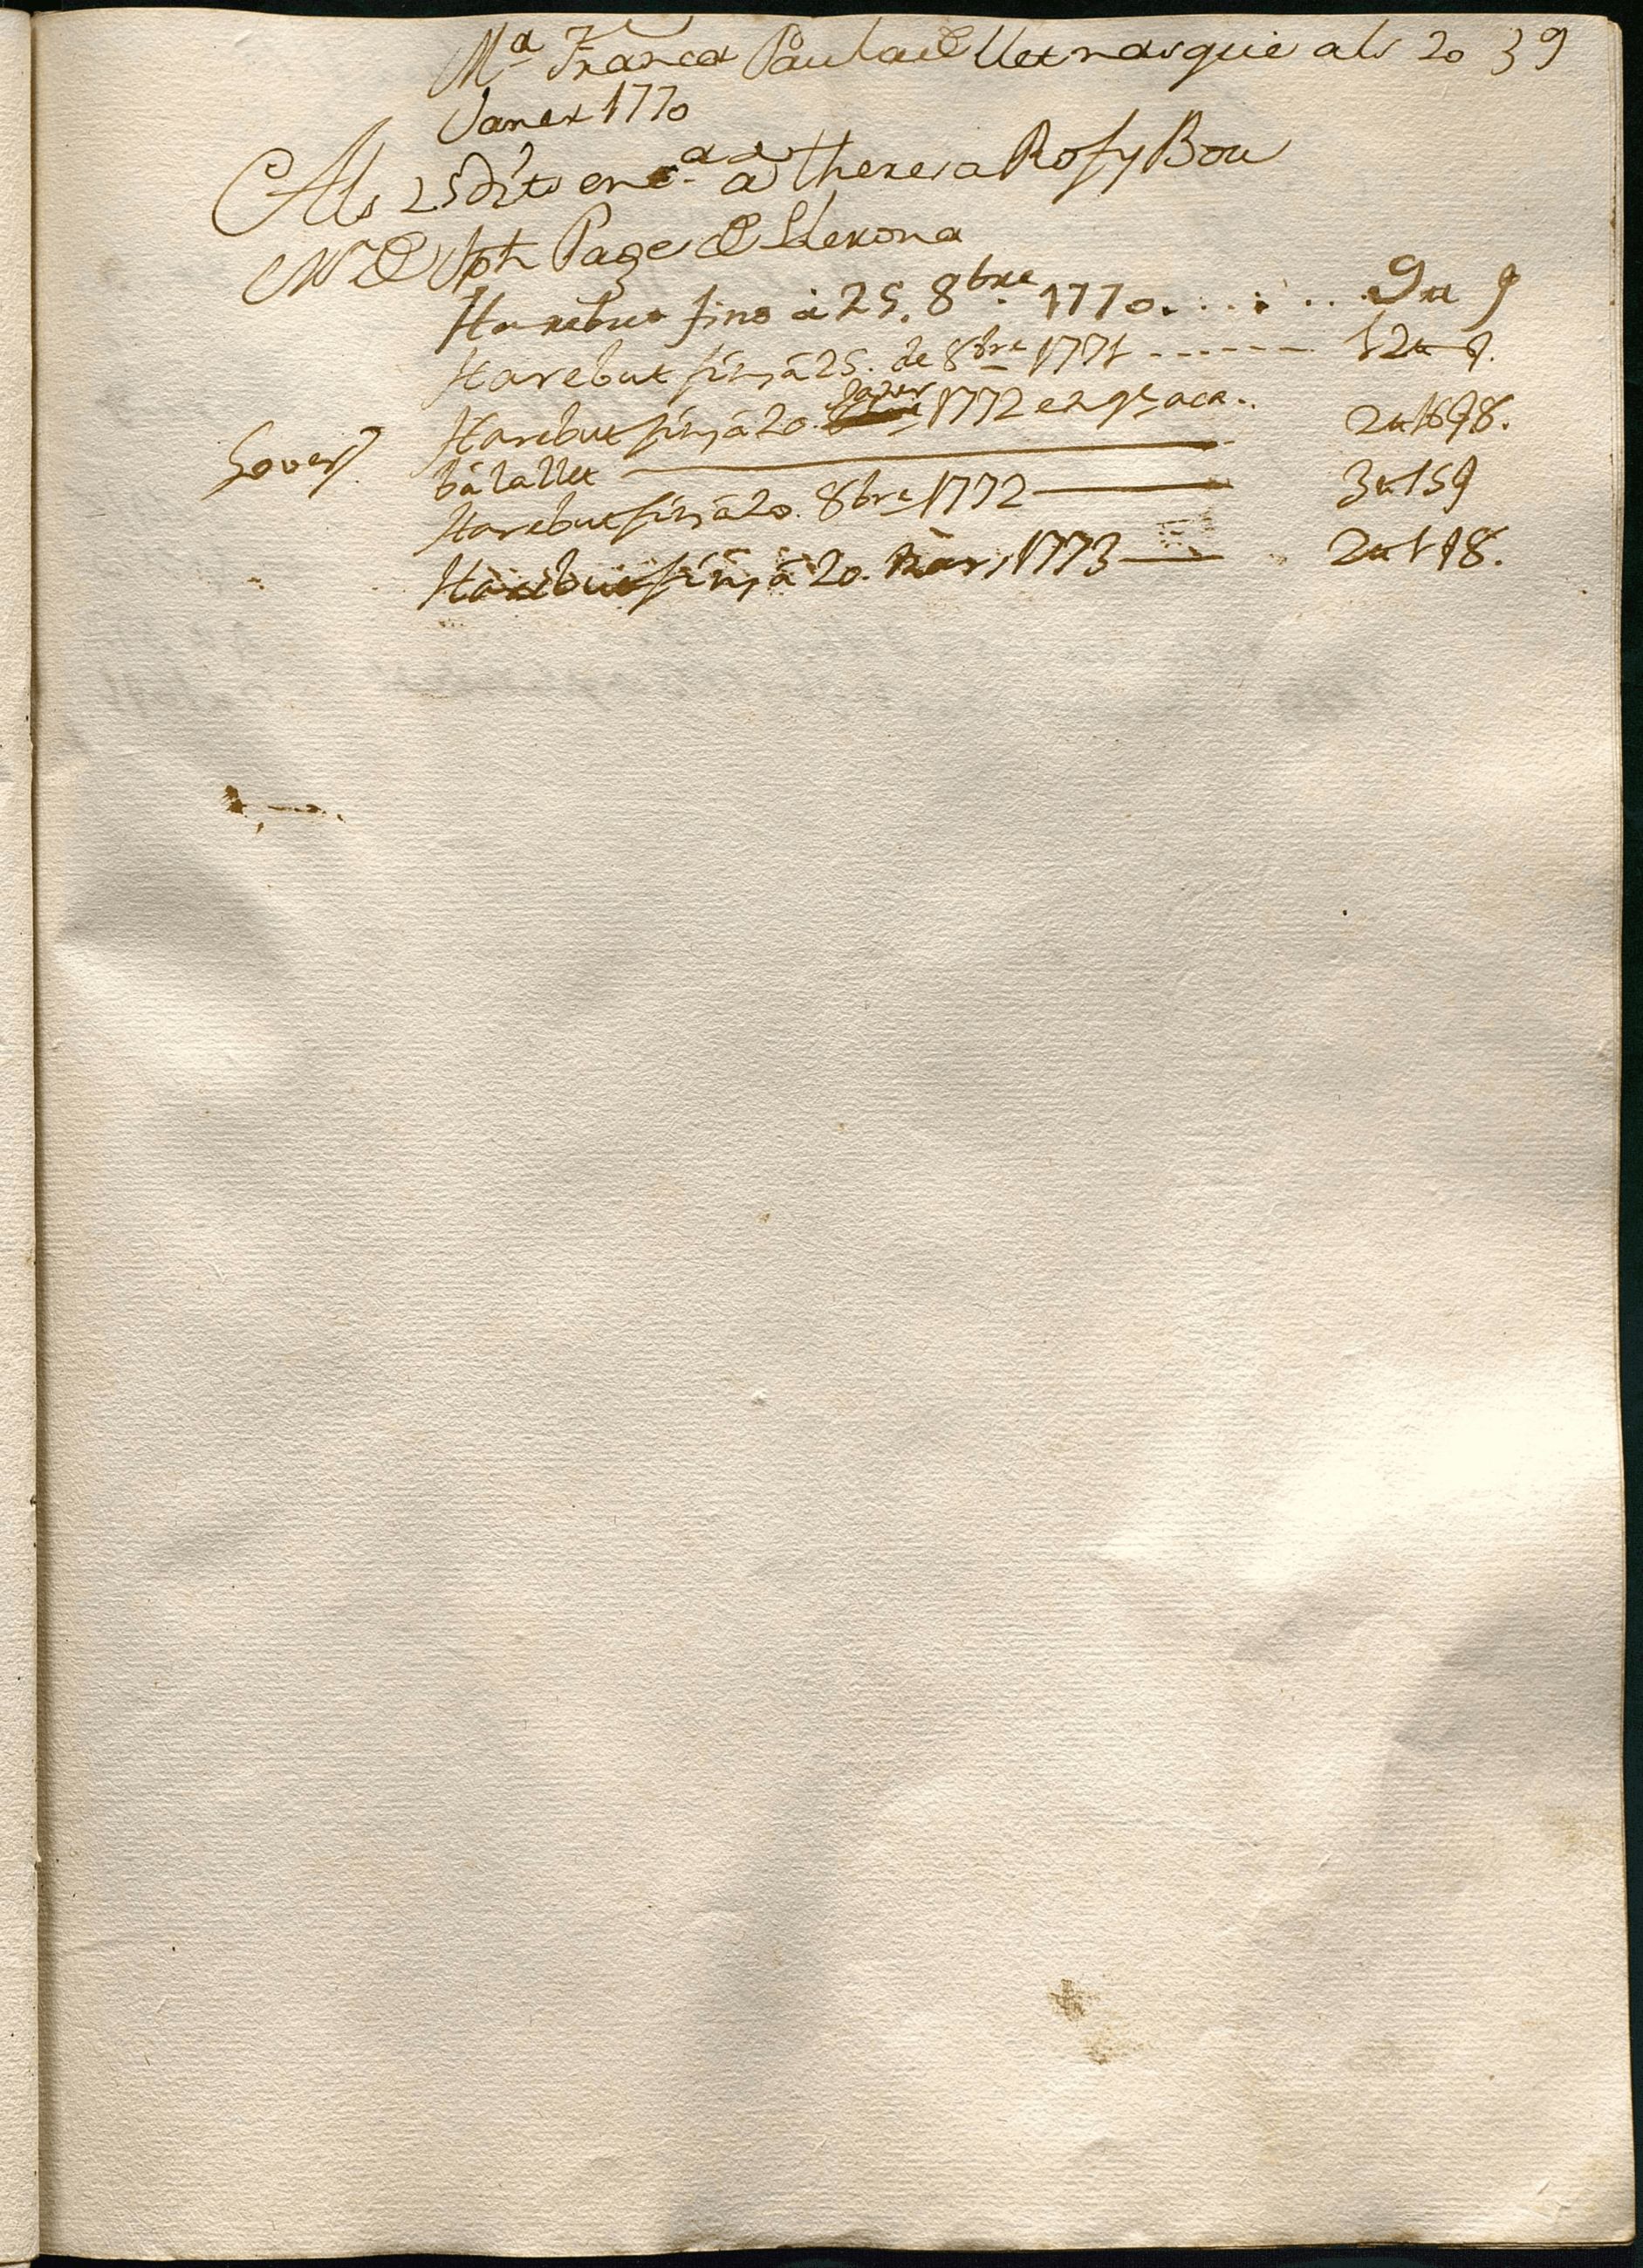 Mª Franca Paula de llet nasque als 20 39
Janer 1770
Als 25 dit en cª a Theresa Ros y Bou
M de Jph Pages de Llerona
Ha rebut fins à 25. 8bre 1770. . . . . . . 9 ₶ 9
Ha rebut fins à 25. de 8bre 1771 ------ 12 ₶ 9.
Ha rebut fins à 20. Janer 1772 en qe aca.. 2 ₶ 16 9 8.
bà la llet
Ha rebut fins à 20. 8bre 1772 — 3 ₶ 15 9
Ha rebut fins à 20. Mars 1773 — 2 ₶ 1 9 8.